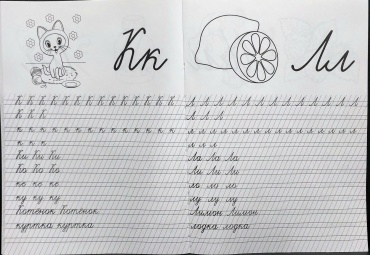 Кк
К К К К К К К К К К К К К К
К К К
к к к к к к к к к к к к к к
к к к
Ки Ки Ки
Ко Ко Ко
ке ке ке
ку ку ку
Котёнок Котёнок
куртка куртка
Лл
Л Л Л Л Л Л Л Л Л Л Л Л Л Л
Л Л Л
л л л л л л л л л л л л л л
л л л
Ла Ла Ла
Ли Ли Ли
ло ло ло
лу лу лу
Лимон Лимон
лодка лодка